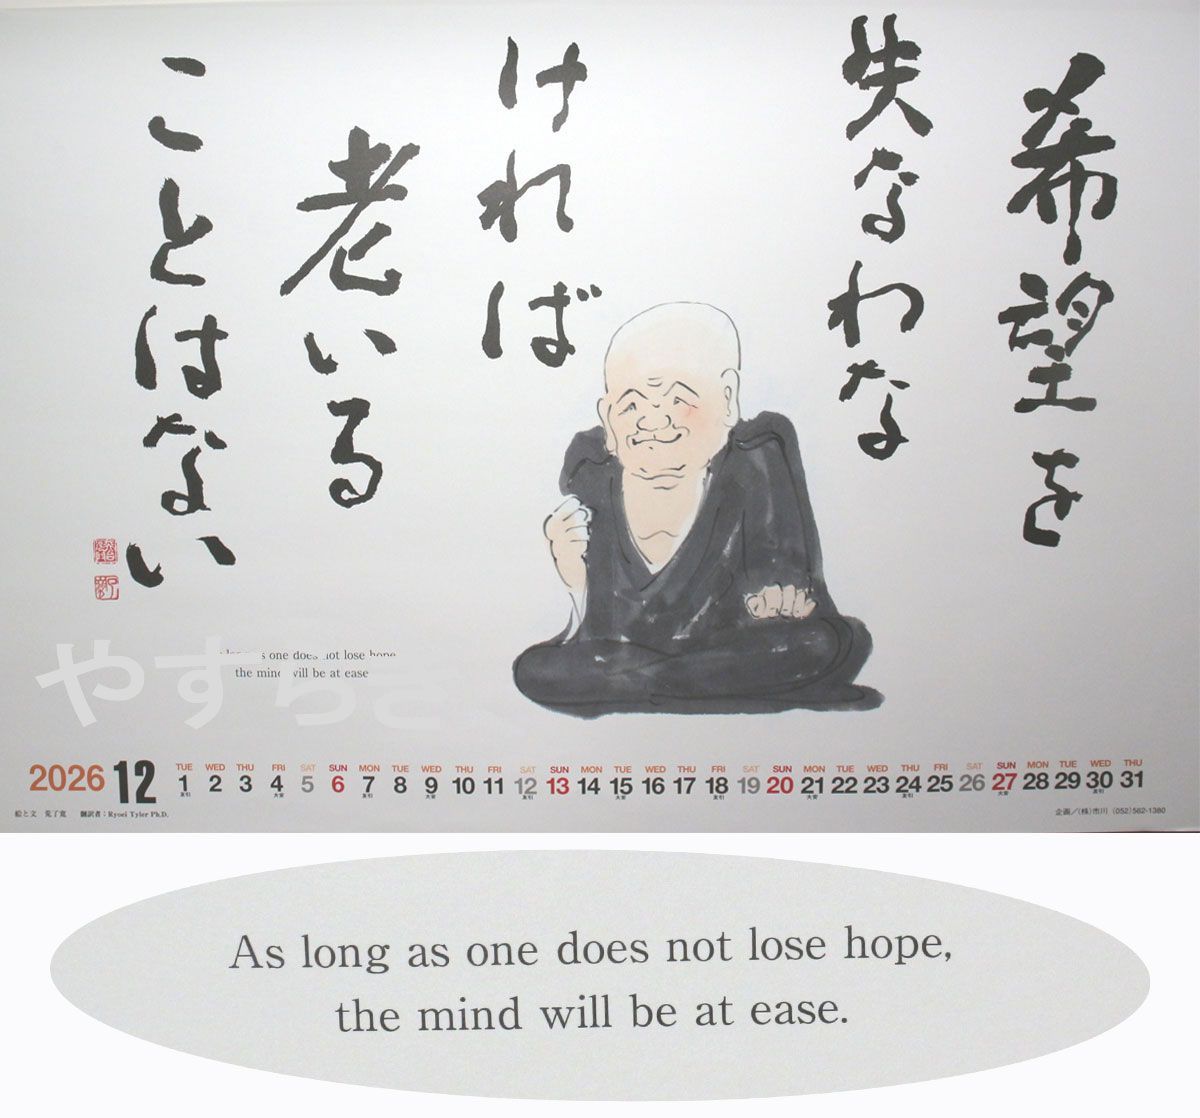 希望を
失なわな
ければ
老いる
ことはない
s one does not lose hope
the mind will be at ease
やすらぎ
2026 12
TUE WED THU FRI SAT SUN MON TUE WED THU FRI SAT SUN MON TUE WED THU FRI SAT SUN MON TUE WED THU FRI SAT SUN MON TUE WED THU
1 2 3 4 5 6 7 8 9 10 11 12 13 14 15 16 17 18 19 20 21 22 23 24 25 26 27 28 29 30 31
友引 大安 友引 大安 友引 大安 友引 大安 友引 大安 友引
絵と文 荒了寛 翻訳者：Ryoei Tyler Ph.D.
企画／(株)市川 (052)562-1380
As long as one does not lose hope,
the mind will be at ease.